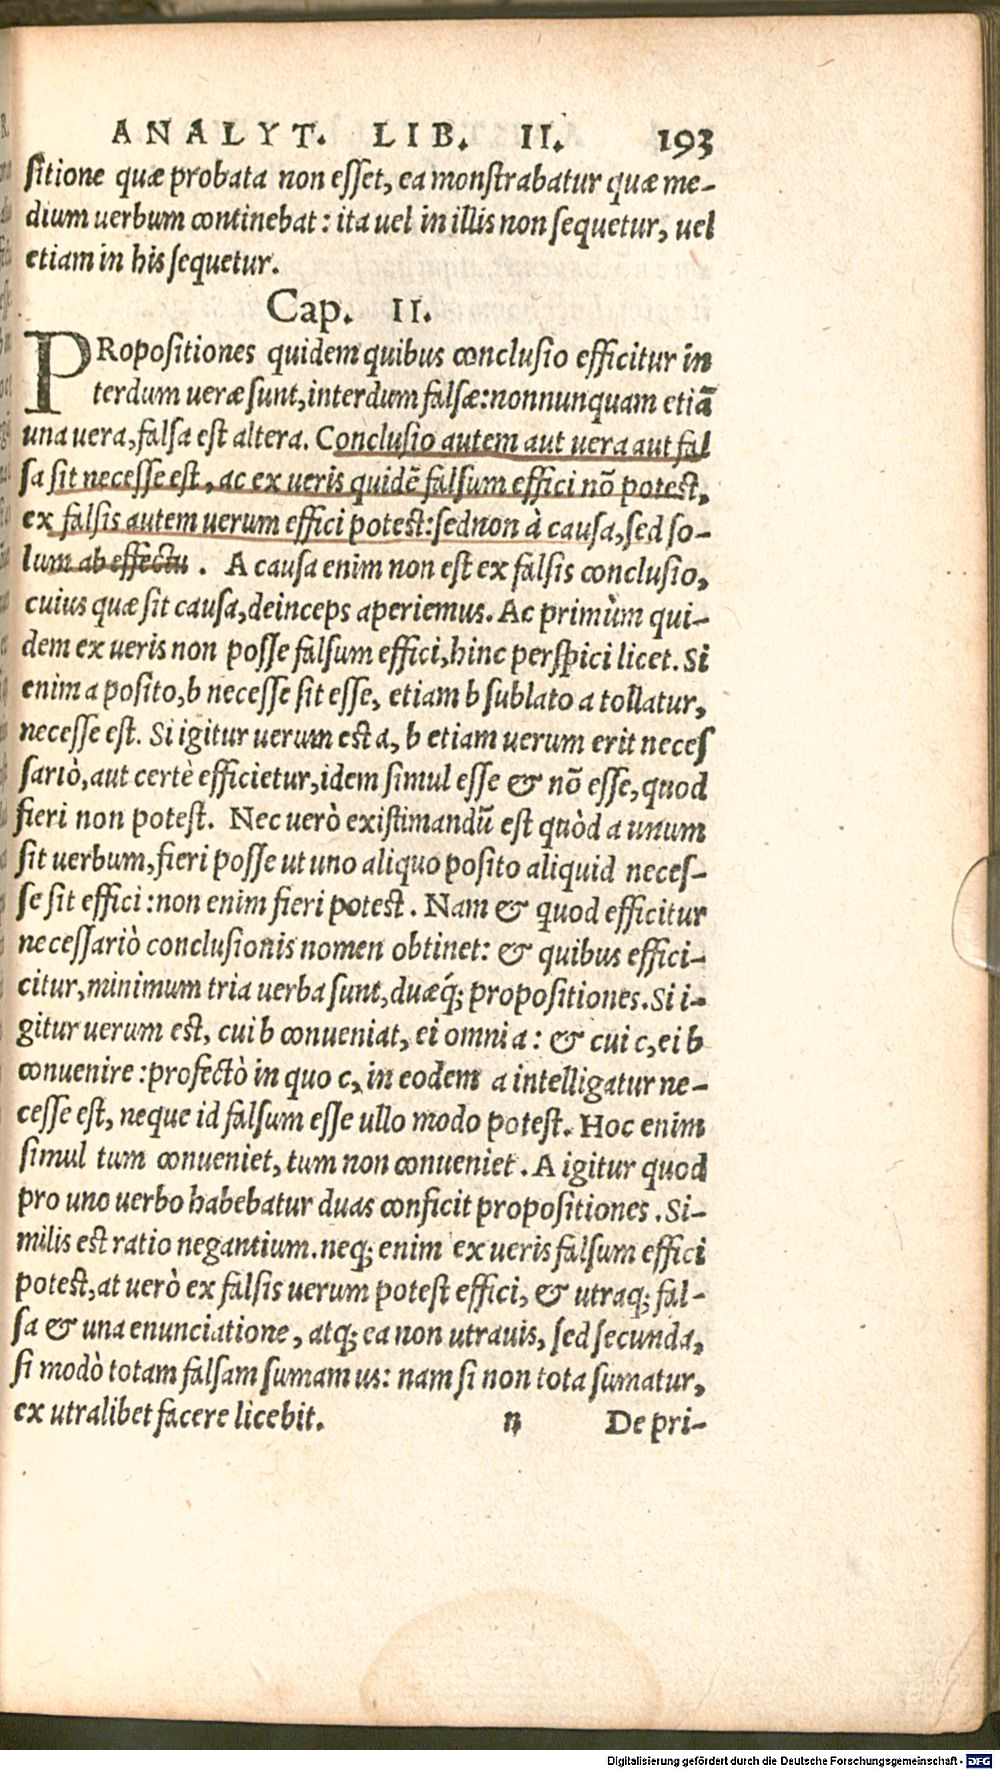 ANALYT. LIB. II. 193
sitione quæ probata non esset, ea monstrabatur quæ me-
dium uerbum continebat: ita uel in illis non sequetur, uel
etiam in his sequetur.
Cap. II.
PRopositiones quidem quibus conclusio efficitur in
terdum ueræ sunt, interdum falsæ: nonnunquam etiã
una uera, falsa est altera. Conclusio autem aut uera aut fal
sa sit necesse est, ac ex ueris quidẽ falsum effici nõ potest,
ex falsis autem uerum effici potest: sed non à causa, sed so-
lum ab effectu. A causa enim non est ex falsis conclusio,
cuius quæ sit causa, deinceps aperiemus. Ac primùm qui-
dem ex ueris non posse falsum effici, hinc perspici licet. Si
enim a posito, b necesse sit esse, etiam b sublato a tollatur,
necesse est. Si igitur uerum est a, b etiam uerum erit neces
sariò, aut certè efficietur, idem simul esse & nõ esse, quod
fieri non potest. Nec uerò existimandũ est quòd a unum
sit uerbum, fieri posse ut uno aliquo posito aliquid neces-
se sit effici: non enim fieri potest. Nam & quod efficitur
necessariò conclusionis nomen obtinet: & quibus effici-
citur, minimum tria uerba sunt, duæq́; propositiones. Si i-
gitur uerum est, cui b conueniat, ei omni a: & cui c, ei b
conuenire: profectò in quo c, in eodem a intelligatur ne-
cesse est, neque id falsum esse ullo modo potest. Hoc enim
simul tum conueniet, tum non conueniet. A igitur quod
pro uno uerbo habebatur duas conficit propositiones. Si-
milis est ratio negantium. neq; enim ex ueris falsum effici
potest, at uerò ex falsis uerum potest effici, & utraq; fal-
sa & una enunciatione, atq; ea non utrauis, sed secunda,
si modò totam falsam sumamus: nam si non tota sumatur,
ex utralibet facere licebit.
n De pri-
Digitalisierung gefördert durch die Deutsche Forschungsgemeinschaft - DFG